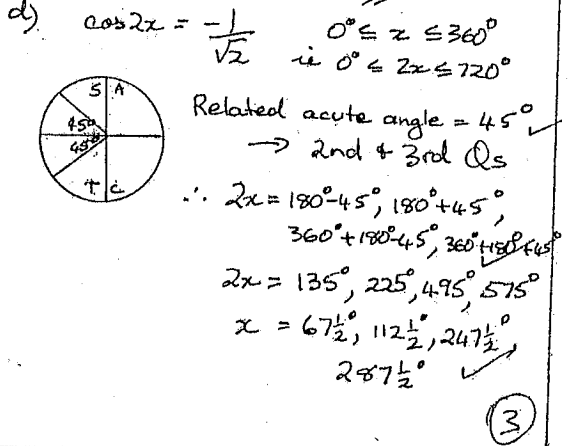 d) cos 2x = -1/√2 0° ≤ x ≤ 360°
ie 0° ≤ 2x ≤ 720°
S A
45°
45°
T C
Related acute angle = 45° ✓
→ 2nd & 3rd Qs
∴ 2x = 180°-45°, 180°+45°,
360°+180°-45°, 360°+180°+45° ✓
2x = 135°, 225°, 495°, 575°
x = 67½°, 112½°, 247½°,
287½° ✓
3